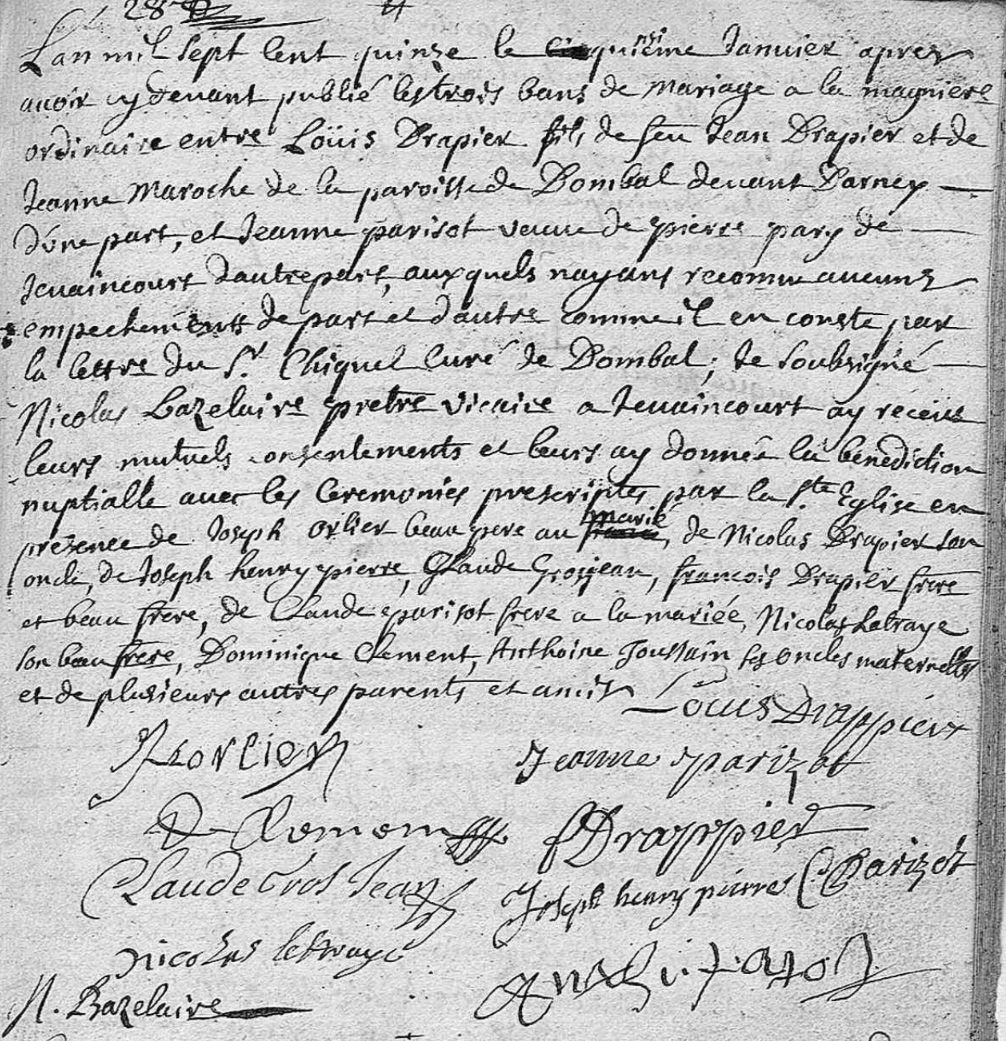 28e
Lan mil sept cent quinze le quinzime Januier apres
auoir cydeuant publié les trois bans de mariage a la magniere
ordinaire entre Loüis Drapier fils de feu Jean Drapier et de
Jeanne Maroche de la paroisse de Dombal deuant Darney
d'une part, et Jeanne parisot veuue de pierre pary de
Jeuaincourt dautrepart, auxquels nayant reconnu aucuns
empechements de part et d'autre comme il en conste par
la lettre du Sr. Chiquel Curé de Dombal; Je soubsigné
Nicolas Bazelaire pretre vicaire a Jeuaincourt ay receus
leurs mutuels consentements et leurs ay donnée la benediction
nuptialle auec les Ceremonies prescriptes par la Ste Eglise en
presence de Joseph Orlier beau pere au marié, de Nicolas Drapier son
oncle, de Joseph henry pierre, Claude Grosjean, francois Drapier frere
et beau frere, de Claude parisot frere a la mariée, Nicolas Labraye
son beau frere, Dominique Clement, Anthoine Toussain ses oncles maternelles
et de plusieurs autres parents et amis Louis Drappier
J orlier Jeanne parizot
D Clement f Drappier
Claude Gros Jean Joseph henry pierre C Parizot
nicolas lebraye
N. Bazelaire